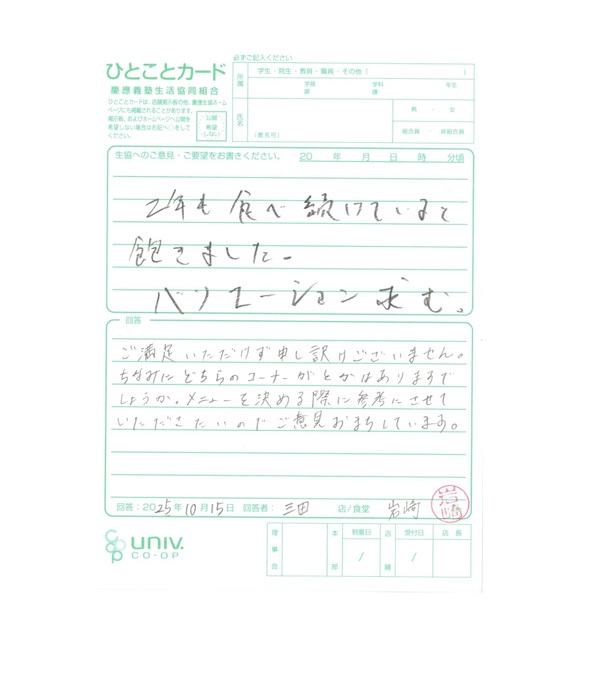 ひとことカード
慶應義塾生活協同組合
ひとことカードは、店頭掲示板の他、慶應生協ホーム
ページにも掲載されることがあります。
掲示板、およびホームページへ公開を
希望しない場合は右記へ○をして
ください。
公開
希望
しない
必ずご記入ください
所属
学生・院生・教員・職員・その他（ ）
学部 学科
課 年生
氏名
（匿名可）
男 ・ 女
組合員 ・ 非組合員
生協へのご意見・ご要望をお書きください。 20 年 月 日 時 分頃
2年も食べ続けていると
飽きました。
バリエーション求む。
回答
ご満足いただけず申し訳けございません。
ちなみにどちらのコーナーがとかはありますで
しょうか。メニューを決める際に参考にさせて
いただきたいのでご意見おまちしています。
回答：2025年10月15日 回答者： 三田 店/食堂 岩崎
岩崎
UNIV.
CO-OP
理事会
本部
到着日
/
店舗
受付日
/
店長